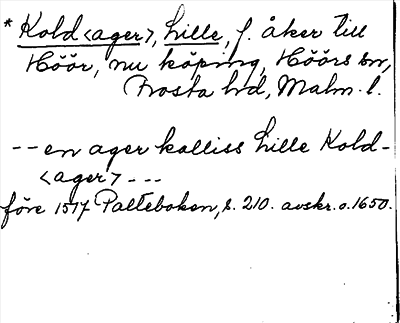 * Kold<ager>, Lille, f. åker till
Höör, nu köping, Höörs sn,
Frosta hd, Malm. l.
-- en ager kalliss Lille Kold-
<ager> ---
före 1517 Palteboken, s. 210. avskr. o. 1650.